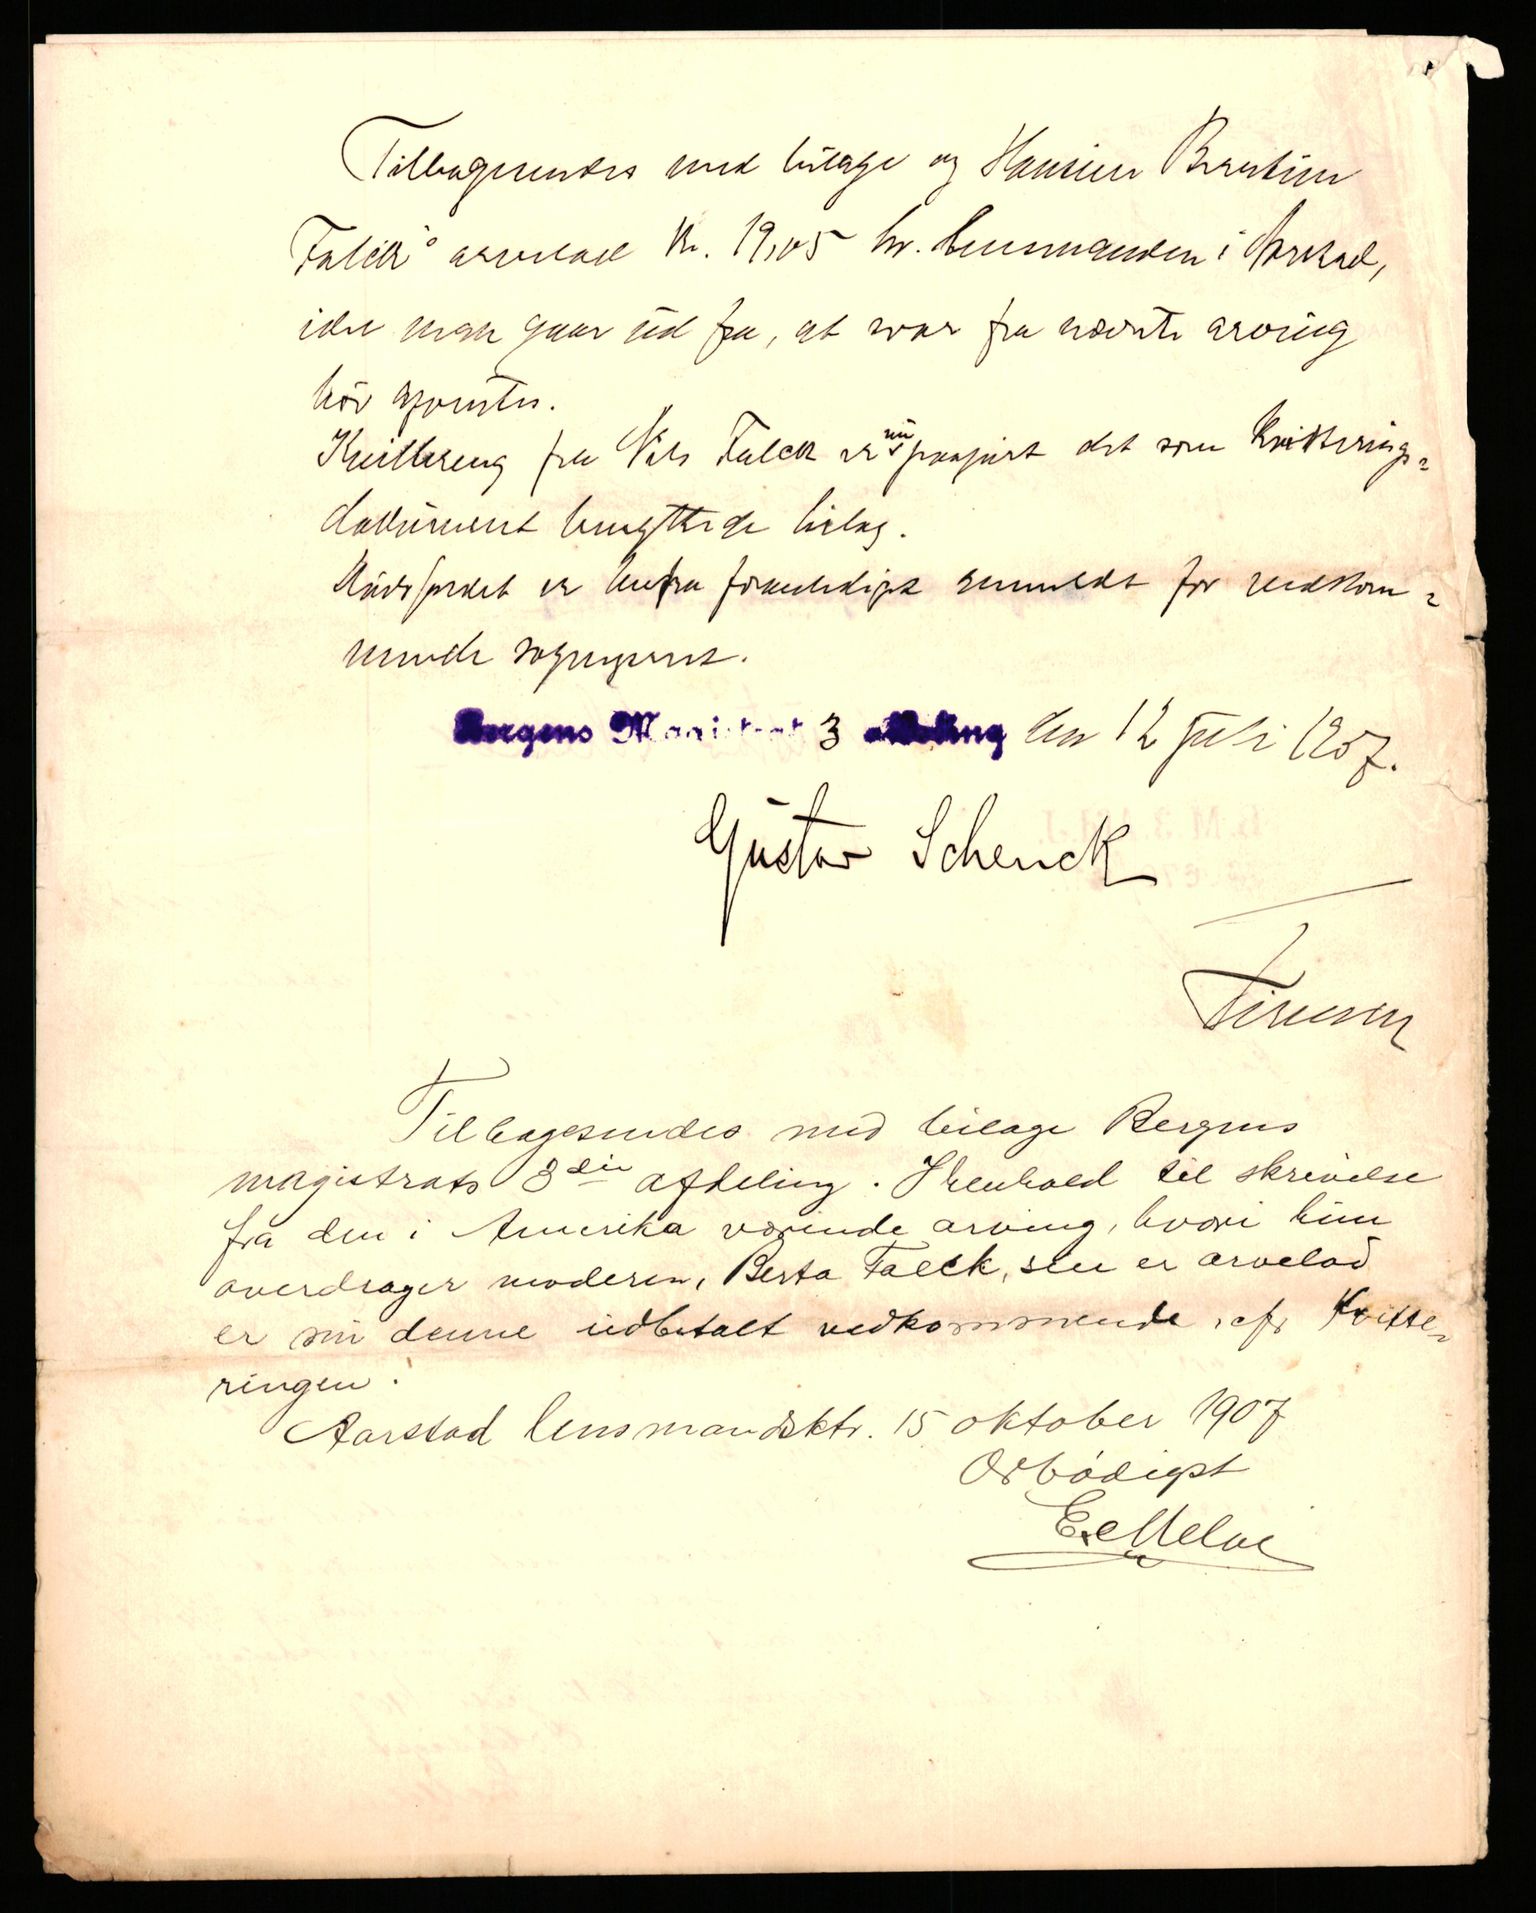 Tilbagesendes med bilage og Hansine Bertine
Falck's arvelod Kr. 19,05 hr. lensmanden i Aarstad,
idet man gaar ud fra, at svar fra nævnte arving
bør afventes.
Kvittering fra Nils Falck er nu paaført det som kvitterings-
dokument benyttede bilag.
Dødsfaldet er herfra anmeldt for vedkom-
mende sogneprest.
Bergens Magistrat 3 afdeling den 12 juli 1907.
Gustav Schenck
Tilbagesendes med bilage Bergens
magistrats 3die afdeling. I henhold til skrivelse
fra den i Amerika værende arving, hvori hun
overdrager moderen, Berta Falck, sin er arvelod
er nu denne udbetalt vedkommende, cfr Kvitte-
ringen.
Aarstad lensmandsktr. 15 oktober 1907
Ærbødigst